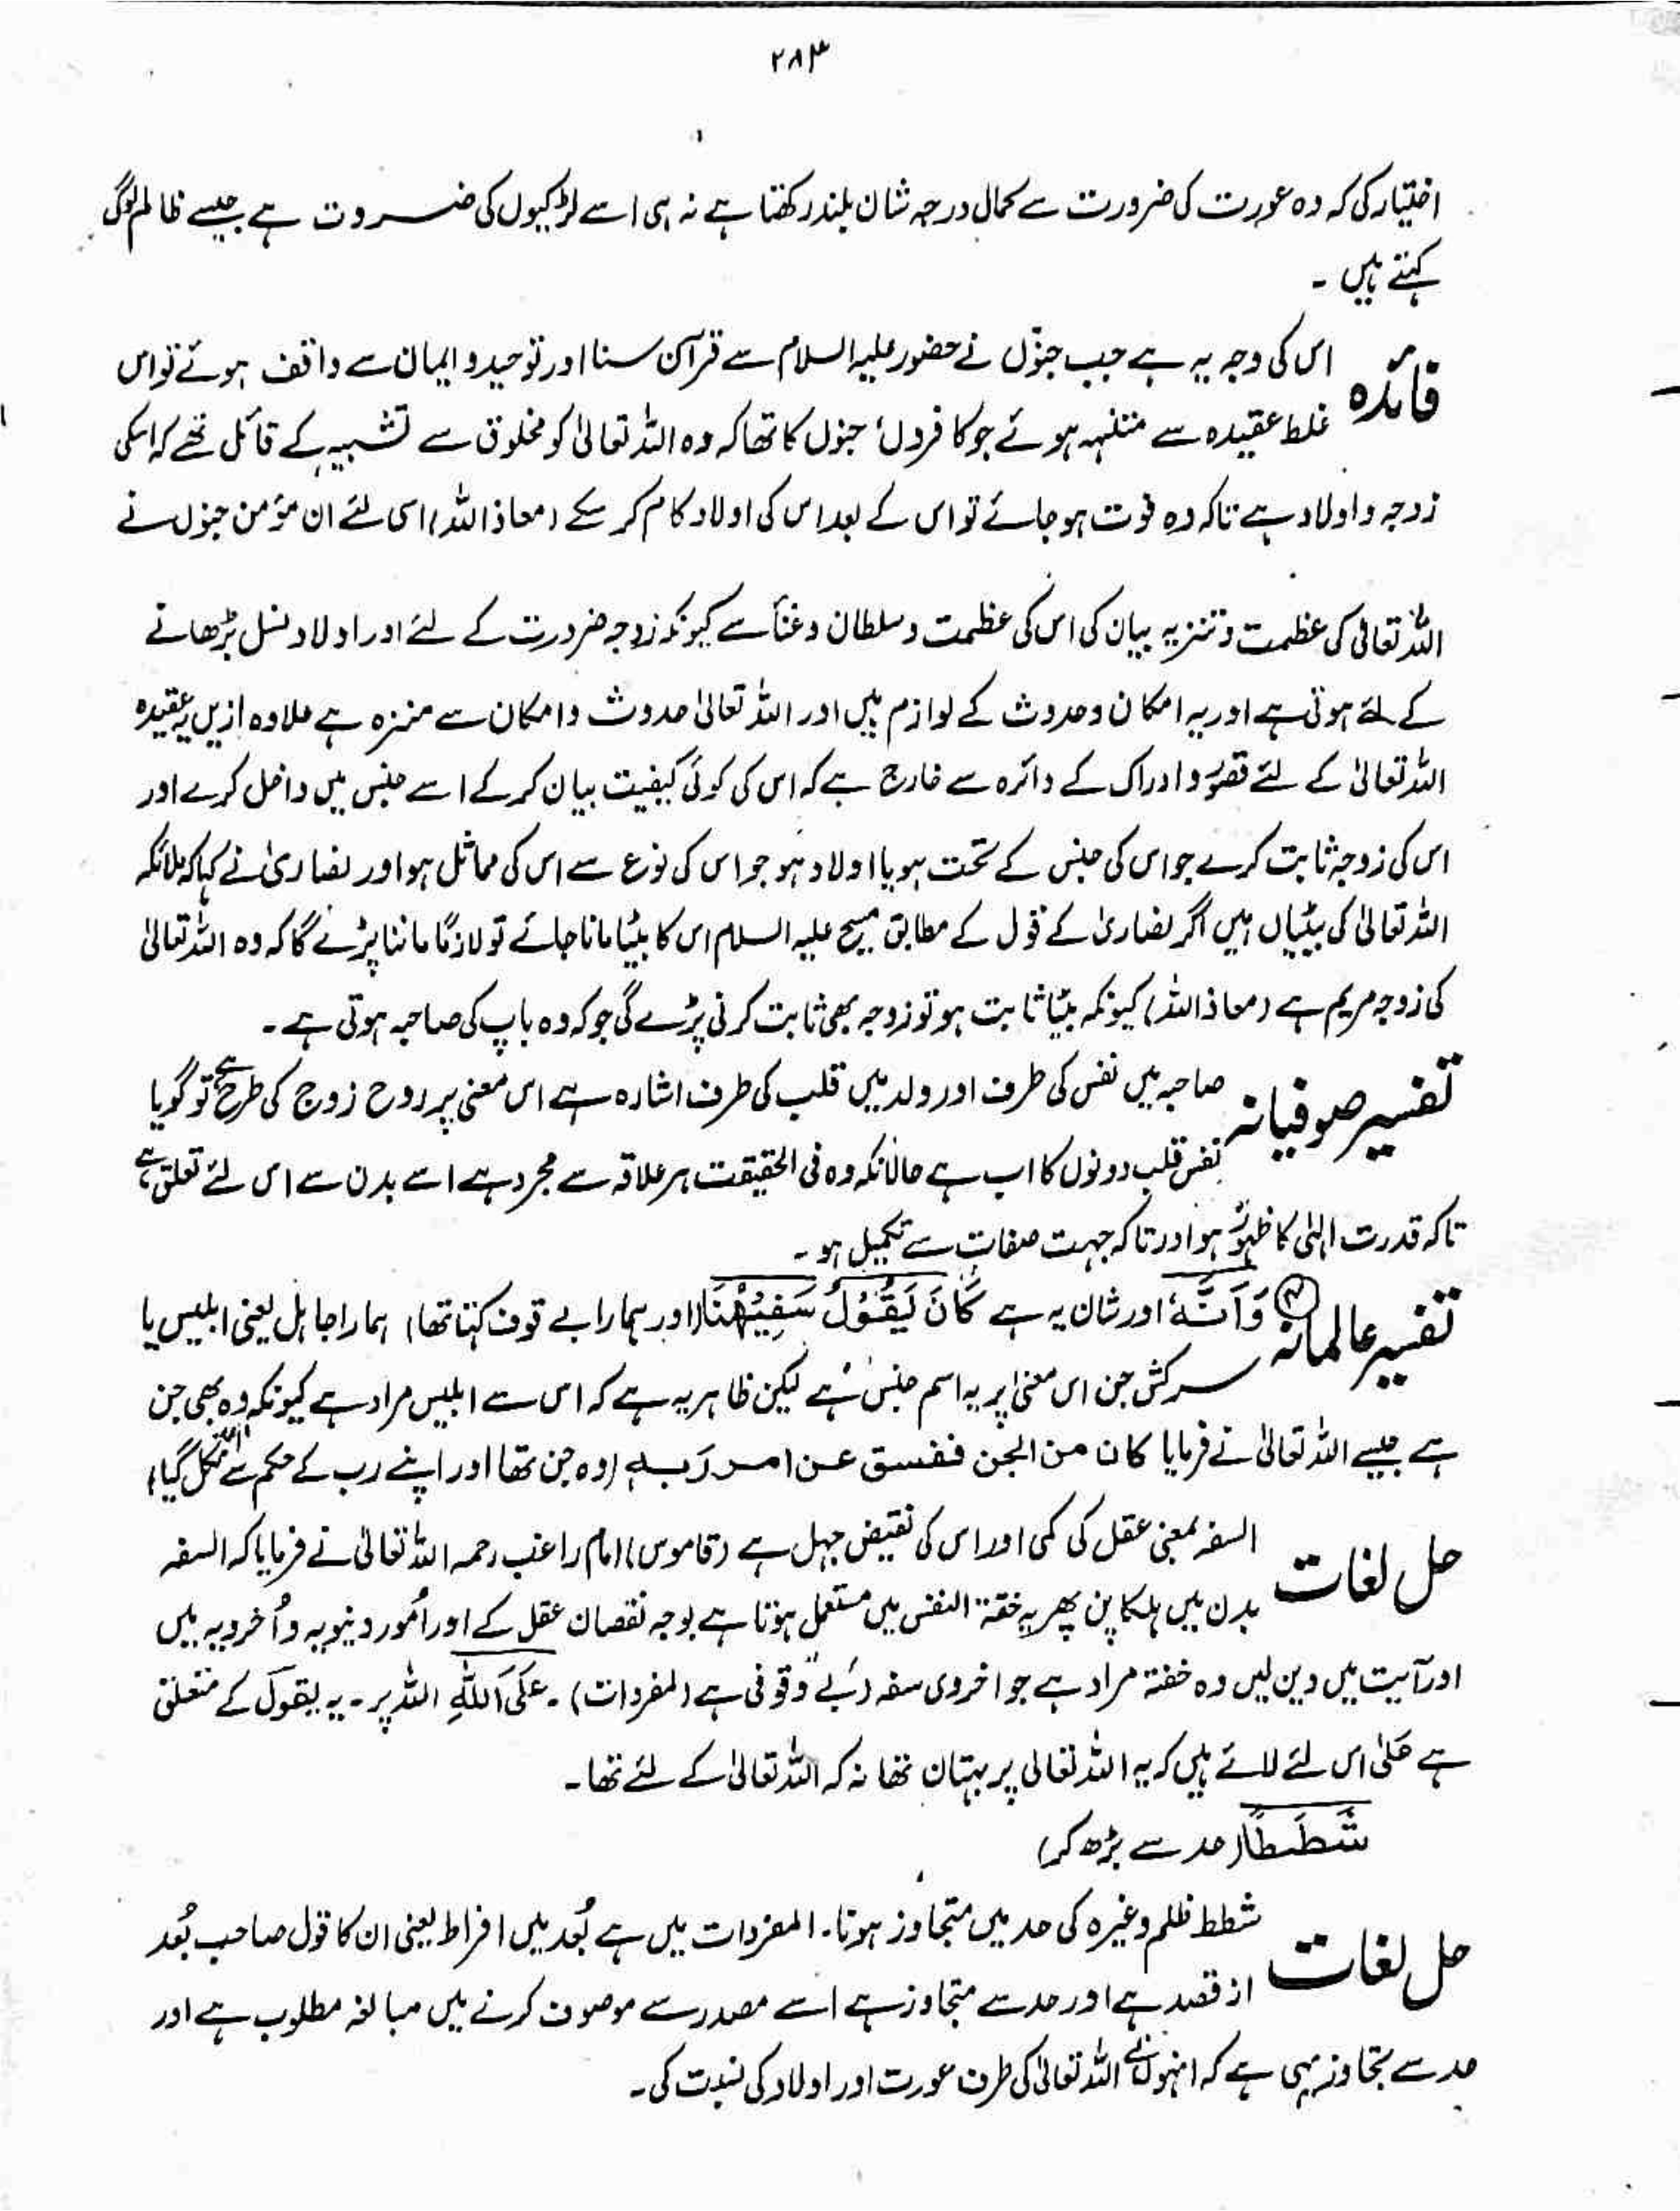 ۲۸۳
اختیار کی کہ وہ عورت کی ضرورت سے کمال درجہ شان بلند رکھتا ہے نہ ہی اسے لڑکیوں کی ضروت ہے جیسے ظالم لوگ
کہتے ہیں ۔
فائدہ اس کی وجہ یہ ہے جب جنوّں نے حضور علیہ السلام سے قرآن سنا اور توحید و ایمان سے واقف ہوئے تو اس
غلط عقیدہ سے متنبہہ ہوئے جو کافر دل جنوں کا تھا کہ وہ اللہ تعالیٰ کو مخلوق سے تشبیہ کے قائل تھے کہ اسکی
زوجہ و اولاد ہے تاکہ وہ فوت ہو جائے تو اس کے بعد اس کی اولاد کام کر سکے (معاذ اللہ) اسی لئے ان مؤمن جنوں نے
اللہ تعالیٰ کی عظمت و تنزیہ بیان کی اس کی عظمت و سلطان و غنأ سے کیونکہ زوجہ ضرورت کے لئے اور اولاد نسل بڑھانے
کے لئے ہوتی ہے اور یہ امکان و حدوث کے لوازم ہیں اور اللہ تعالیٰ حدوث و امکان سے منزہ ہے علاوہ ازیں یہ عقیدہ
اللہ تعالیٰ کے لئے تصوّر و ادراک کے دائرہ سے خارج ہے کہ اس کی کوئی کیفیت بیان کر کے اسے جنس میں داخل کرے اور
اس کی زوجہ ثابت کرے جو اس کی جنس کے تحت ہو یا اولاد ہو جو اس کی نوع سے اس کی مماثل ہو اور نصاریٰ نے کہا کہ ملائکہ
اللہ تعالیٰ کی بیٹیاں ہیں اگر نصاریٰ کے قول کے مطابق مسیح علیہ السلام اس کا بیٹا مانا جائے تو لازمًا ماننا پڑے گا کہ وہ اللہ تعالیٰ
کی زوجہ مریم ہے (معاذ اللہ) کیونکہ بیٹا ثابت ہو تو زوجہ بھی ثابت کرنی پڑے گی جو کہ وہ باپ کی صاحبہ ہوتی ہے ۔
تفسیر صوفیانہ صاحبہ میں نفس کی طرف اور ولد میں قلب کی طرف اشارہ ہے اس معنی پر روح زوج کی طرح ہے تو گویا
نفس قلب دونوں کا اب ہے حالانکہ وہ فی الحقیقت ہر علاقہ سے مجرد ہے اسے بدن سے اس لئے تعلق ہے
تاکہ قدرت الہٰی کا ظہوُر ہو اور تاکہ جہت صفات سے تکمیل ہو ۔
تفسیر عالمانہ ④ وَاَنَّهٗ اور شان یہ ہے كَانَ يَقُوْلُ سَفِيْهُنَا (اور ہمارا بے قوف کہتا تھا) ہمارا جاہل یعنی ابلیس یا
سرکش جن اس معنیٰ پر یہ اسم جنس ہے لیکن ظاہر یہ ہے کہ اس سے ابلیس مراد ہے کیونکہ وہ بھی جن
ہے جیسے اللہ تعالیٰ نے فرمایا کان من الجن ففسق عن امر رَبہ (وہ جن تھا اور اپنے رب کے حکم سے نکل گیا)
حل لغات السفہ بمعنی عقل کی کمی اور اس کی نقیض جہل ہے (قاموس) امام راغب رحمہ اللہ تعالیٰ نے فرمایا کہ السفہ
بدن میں ہلکا پن پھر یہ خفتہ النفس میں مستعمل ہوتا ہے بوجہ نقصان عقل کے اور اُمور دینویہ و اُخرویہ میں
اور آیت میں دین میں وہ خفتہ مراد ہے جو اخروی سفہ (بے وقوفی ہے (المفردات) ۔ عَلَى اللهِ اللہ پر ۔ یہ یقول کے متعلق
ہے علیٰ اس لئے لائے ہیں کہ یہ اللہ تعالیٰ پر بہتان تھا نہ کہ اللہ تعالیٰ کے لئے تھا ۔
شَطَطًا (حد سے بڑھ کر)
حل لغات شطط ظلم وغیرہ کی حد میں متجاوز ہونا ۔ المفردات میں ہے بُعد میں افراط یعنی ان کا قول صاحب بُعد
از قصد ہے اور حد سے متجاوز ہے اسے مصدر سے موصوف کرنے میں مبالغہ مطلوب ہے اور
حد سے تجاوز یہی ہے کہ انہوں نے اللہ تعالیٰ کی طرف عورت اور اولاد کی نسبت کی ۔